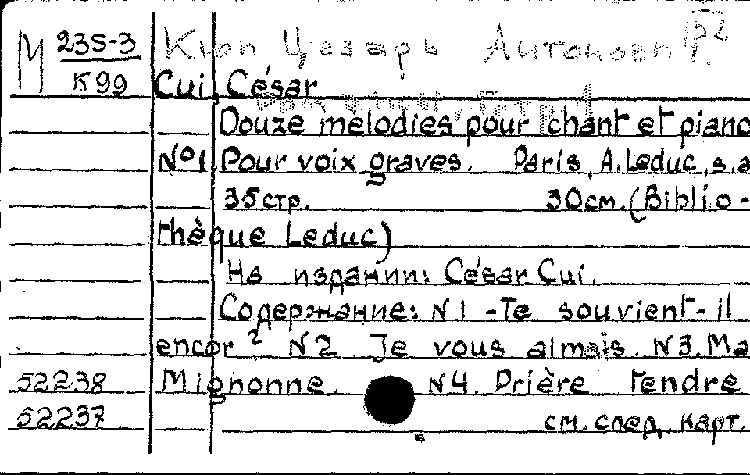 М 235-3 Кюи Цезарь Антонович
К99 Cui, César
Douze mélodies pour chant et piano
№1 Pour voix graves. Paris, A.Leduc, s.a
35стр. 30см. (Biblio-
thèque Leduc)
На издании: César Cui.
Содержание: N1 -Te souvient-il
encor? N2 Je vous aimais. N3. Ma
52238 Mignonne. N4. Prière tendre
52237 см. след. карт.